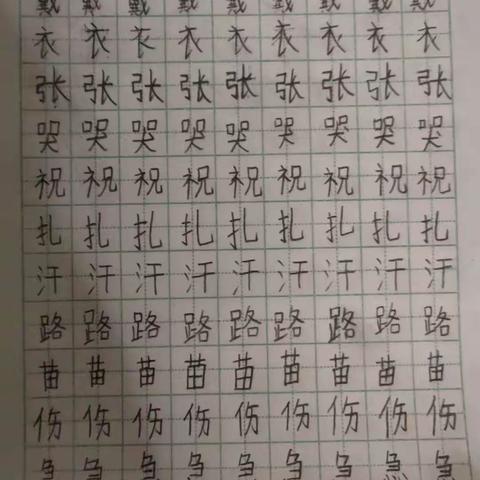 戴 戴 戴 戴 戴 戴 戴 戴 戴
衣 衣 衣 衣 衣 衣 衣 衣 衣
张 张 张 张 张 张 张 张 张
哭 哭 哭 哭 哭 哭 哭 哭 哭
祝 祝 祝 祝 祝 祝 祝 祝 祝
扎 扎 扎 扎 扎 扎 扎 扎 扎
汗 汗 汗 汗 汗 汗 汗 汗 汗
路 路 路 路 路 路 路 路 路
苗 苗 苗 苗 苗 苗 苗 苗 苗
伤 伤 伤 伤 伤 伤 伤 伤 伤